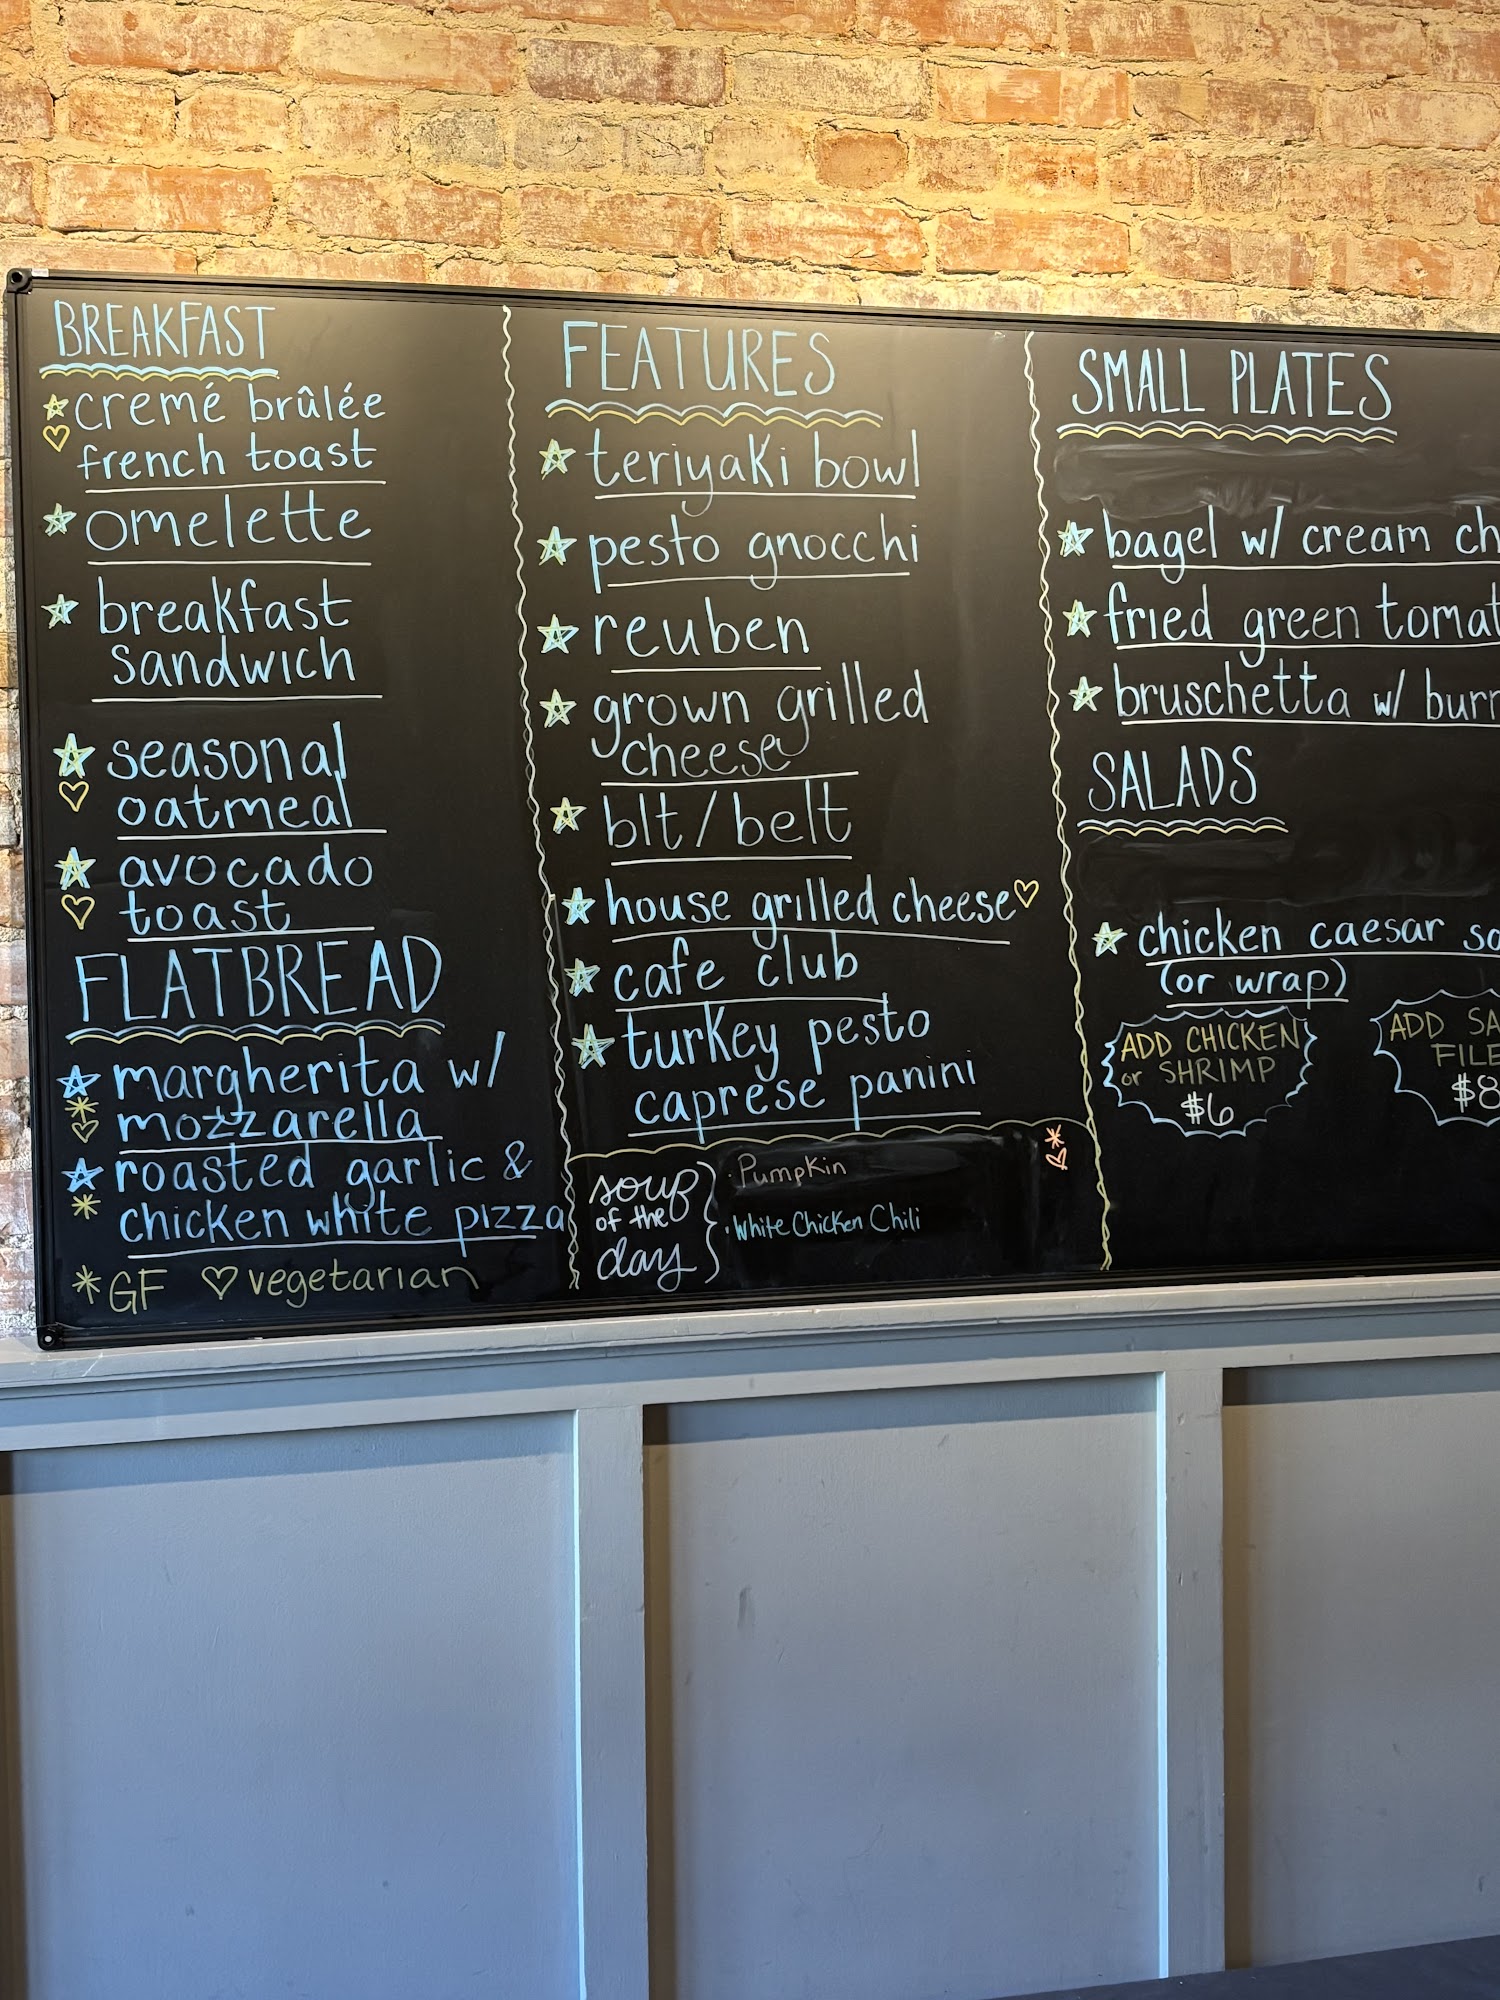 BREAKFAST
cremé brûlée
french toast
omelette
breakfast
sandwich
seasonal
oatmeal
avocado
toast
FLATBREAD
margherita w/
mozzarella
roasted garlic &
chicken white pizza
* GF ♡ vegetarian
FEATURES
teriyaki bowl
pesto gnocchi
reuben
grown grilled
cheese
blt/belt
house grilled cheese ♡
cafe club
turkey pesto
caprese panini
soup
of the
day
· Pumpkin
· White Chicken Chili
SMALL PLATES
bagel w/ cream ch
fried green tomat
bruschetta w/ burr
SALADS
chicken caesar sa
(or wrap)
ADD CHICKEN
or SHRIMP
$6
ADD SA
FILE
$8